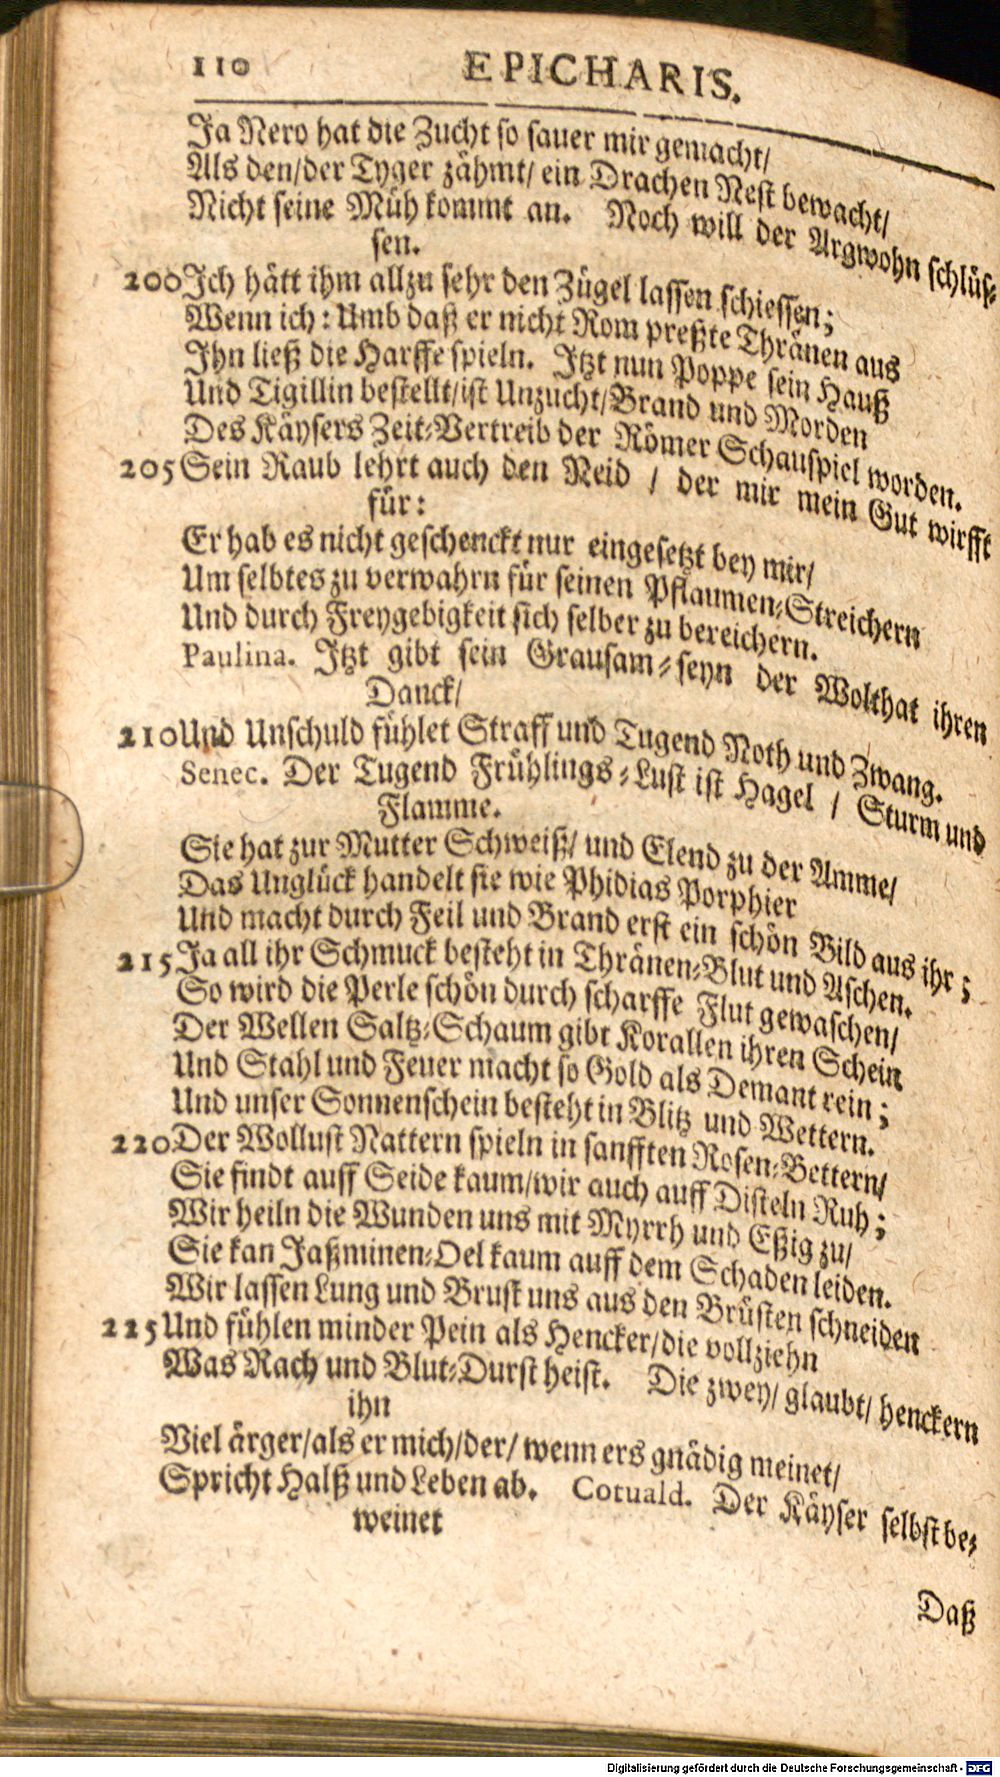 110 EPICHARIS.
Ja Nero hat die Zucht so sauer mir gemacht/
Als den/der Tyger zähmt/ ein Drachen Nest bewacht/
Nicht seine Müh kommt an. Noch will der Argwohn schlüs-
sen.
200 Ich hätt ihm allzu sehr den Zügel lassen schiessen;
Wenn ich: Umb daß er nicht Rom preßte Thränen aus
Ihn ließ die Harffe spieln. Itzt nun Poppe sein Hauß
Und Tigillin bestellt/ist Unzucht/Brand und Morden
Des Käysers Zeit-Vertreib der Römer Schauspiel worden.
205 Sein Raub lehrt auch den Neid / der mir mein Gut wirfft
für:
Er hab es nicht geschenckt nur eingesetzt bey mir/
Um selbtes zu verwahrn für seinen Pflaumen-Streichern
Und durch Freygebigkeit sich selber zu bereichern.
Paulina. Itzt gibt sein Grausam-seyn der Wolthat ihren
Danck/
210 Und Unschuld fühlet Straff und Tugend Noth und Zwang.
Senec. Der Tugend Frühlings-Lust ist Hagel / Sturm und
Flamme.
Sie hat zur Mutter Schweiß/ und Elend zu der Amme/
Das Unglück handelt sie wie Phidias Porphier
Und macht durch Feil und Brand erst ein schön Bild aus ihr;
215 Ja all ihr Schmuck besteht in Thränen-Blut und Aschen.
So wird die Perle schön durch scharffe Flut gewaschen/
Der Wellen Saltz-Schaum gibt Korallen ihren Schein
Und Stahl und Feuer macht so Gold als Demant rein;
Und unser Sonnenschein besteht in Blitz und Wettern.
220 Der Wollust Nattern spieln in sanfften Rosen-Bettern/
Sie findt auff Seide kaum/wir auch auff Disteln Ruh;
Wir heiln die Wunden uns mit Myrrh und Eßig zu/
Sie kan Jaßminen-Oel kaum auff dem Schaden leiden.
Wir lassen Lung und Brust uns aus den Brüsten schneiden
225 Und fühlen minder Pein als Hencker/die vollziehn
Was Rach und Blut-Durst heist. Die zwey/ glaubt/ henckern
ihn
Viel ärger/als er mich/der/ wenn ers gnädig meinet/
Spricht Halß und Leben ab. Cotuald. Der Käyser selbst be-
weinet
Daß
Digitalisierung gefördert durch die Deutsche Forschungsgemeinschaft - DFG